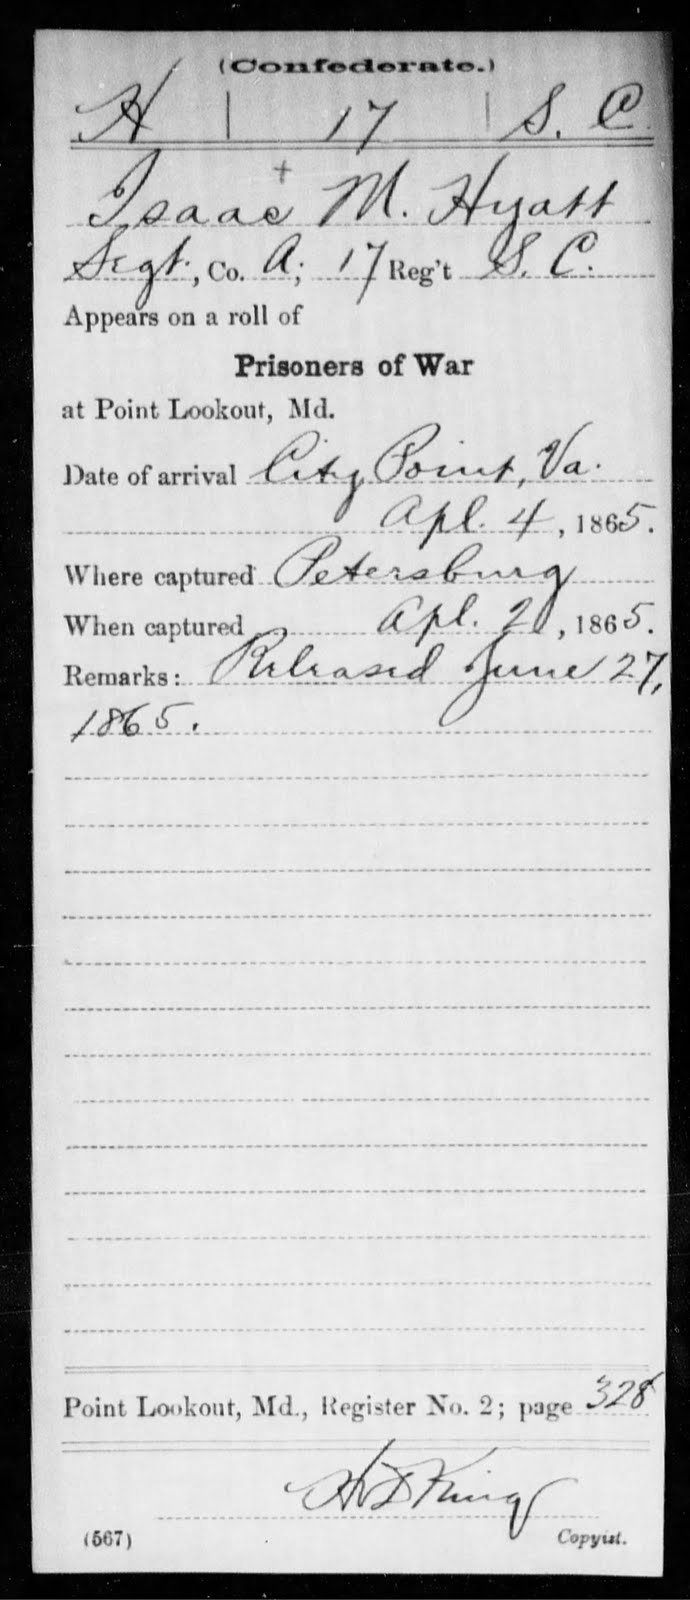 (Confederate.)
H | 17 | S. C.
+
Isaac M. Hyatt
Sergt., Co. A; 17 Reg't S. C.
Appears on a roll of
Prisoners of War
at Point Lookout, Md.
Date of arrival City Point, Va.
Apl. 4, 1865.
Where captured Petersburg
When captured Apl. 2, 1865.
Remarks: Released June 27,
1865.
Point Lookout, Md., Register No. 2; page 328
King
(567) Copyist.